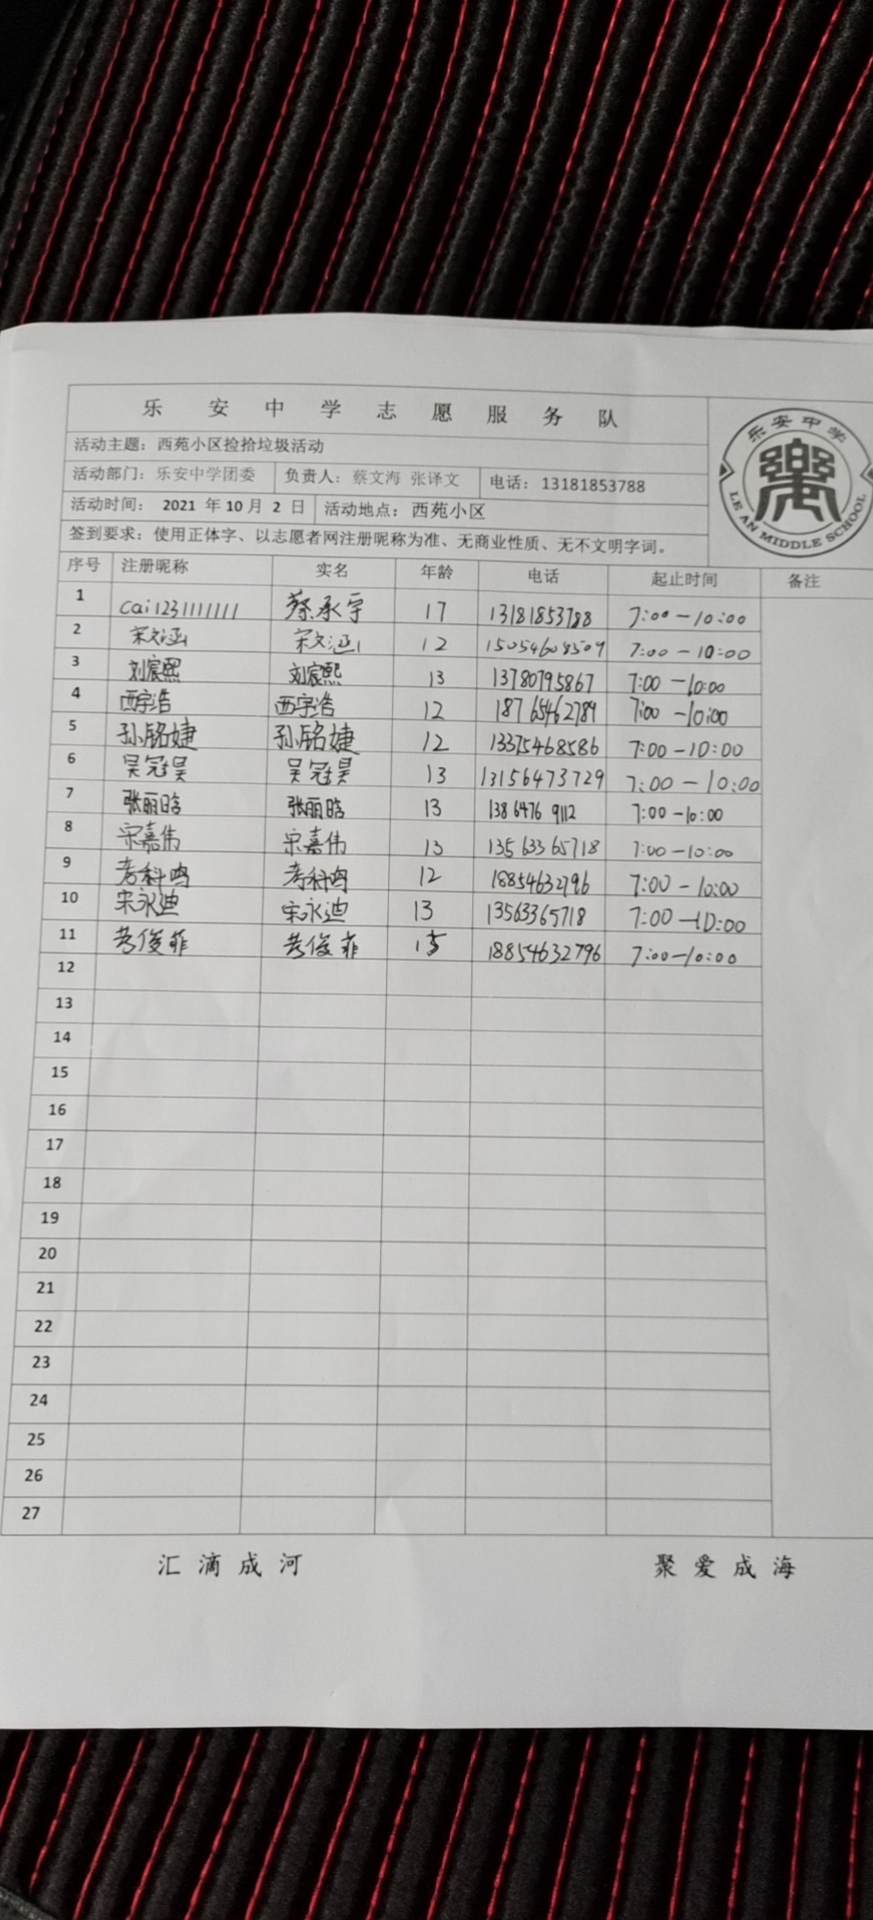 乐安中学志愿服务队
活动主题：西苑小区捡拾垃圾活动
活动部门：乐安中学团委 负责人：蔡文海 张译文 电话：13181853788
活动时间： 2021 年 10 月 2 日 活动地点：西苑小区
签到要求：使用正体字、以志愿者网注册昵称为准、无商业性质、无不文明字词。
乐安中学
LE AN MIDDLE SCHOOL
序号 注册昵称 实名 年龄 电话 起止时间 备注
1 cai1231111111 蔡承宇 17 13181853788 7:00-10:00
2 宋文涵 宋文涵 12 15054608509 7:00-10:00
3 刘宸熙 刘宸熙 13 13780795867 7:00-10:00
4 西宇浩 西宇浩 12 18765462789 7:00-10:00
5 孙铭婕 孙铭婕 12 13375468586 7:00-10:00
6 吴冠昊 吴冠昊 13 13156473729 7:00-10:00
7 张丽晗 张丽晗 13 138 6476 9112 7:00-10:00
8 宋嘉伟 宋嘉伟 13 135 633 65718 7:00-10:00
9 科鸣 科鸣 12 18854632796 7:00-10:00
10 宋永迪 宋永迪 13 13563365718 7:00-10:00
11 俊菲 俊菲 15 18854632796 7:00-10:00
12
13
14
15
16
17
18
19
20
21
22
23
24
25
26
27
汇滴成河 聚爱成海